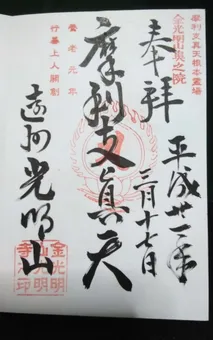 摩利支真天根本霊場
奉拝
平成廿一年
三月十七日
摩利支眞天
養老元年
行基上人開創
遠州光明山
金光明
山光明
寺之印